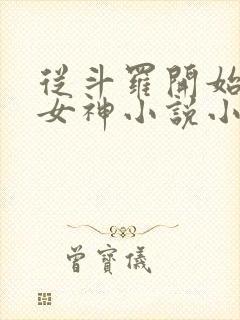 從斗羅開始
女神小說小
曾寶儀